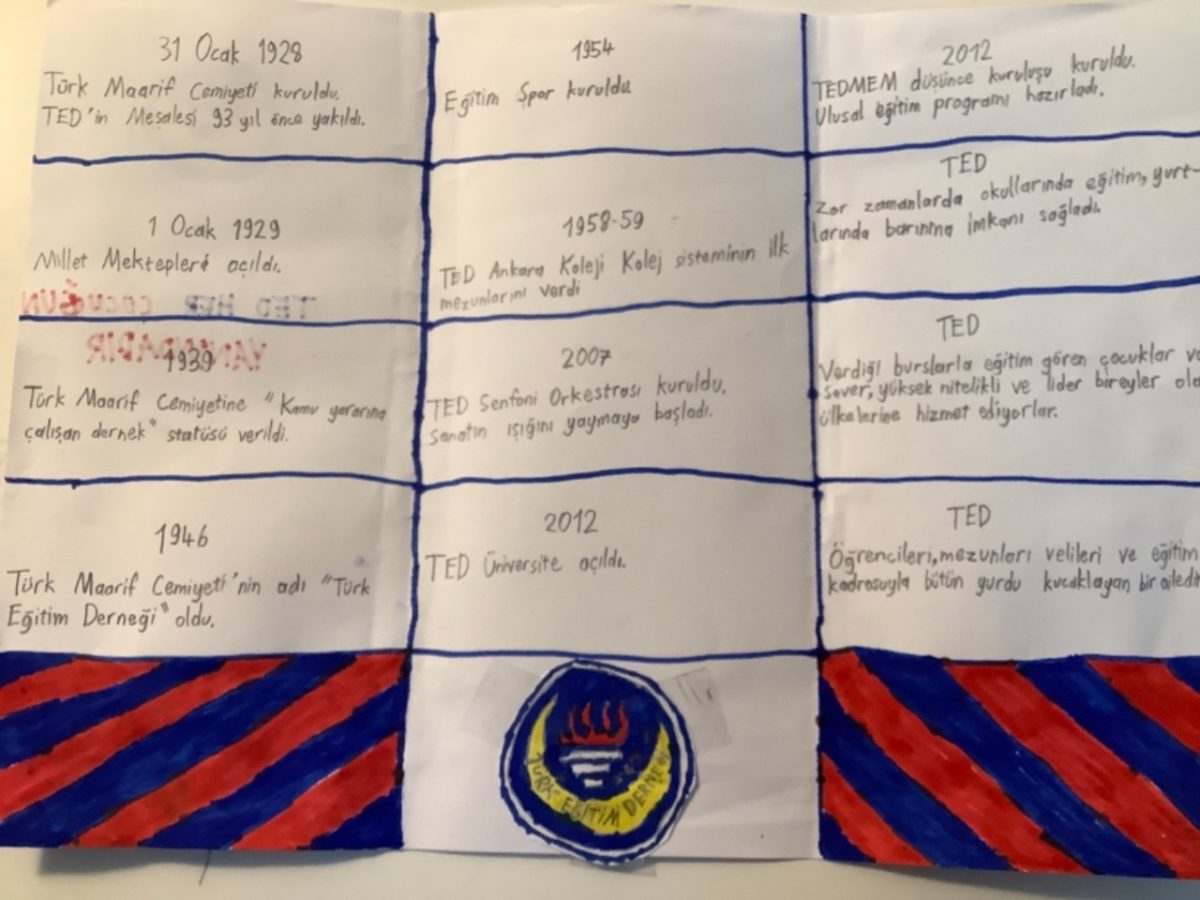 31 Ocak 1928
Türk Maarif Cemiyeti kuruldu.
TED'in Meşalesi 93 yıl önce yakıldı.
1 Ocak 1929
Millet Mektepleri açıldı.
TED HER ÇOCUĞUN
YANINDADIR
1939
Türk Maarif Cemiyetine "Kamu yararına
çalışan dernek" statüsü verildi.
1946
Türk Maarif Cemiyeti'nin adı "Türk
Eğitim Derneği" oldu.
1954
Eğitim Spor kuruldu
1958-59
TED Ankara Koleji Kolej sisteminin ilk
mezunlarını verdi
2007
TED Senfoni Orkestrası kuruldu.
Sanatın ışığını yaymaya başladı.
2012
TED Üniversite açıldı.
TÜRK EĞİTİM DERNEĞİ
2012
TEDMEM düşünce kuruluşu kuruldu.
Ulusal eğitim programı hazırladı.
TED
Zor zamanlarda okullarında eğitim, yurt-
larında barınma imkanı sağladı.
TED
Verdiği burslarla eğitim gören çocuklar
sever, yüksek nitelikli ve lider bireyler
ülkelerine hizmet ediyorlar.
TED
Öğrencileri, mezunları velileri ve eğitim
kadrosuyla bütün yurdu kucaklayan bir ailedir